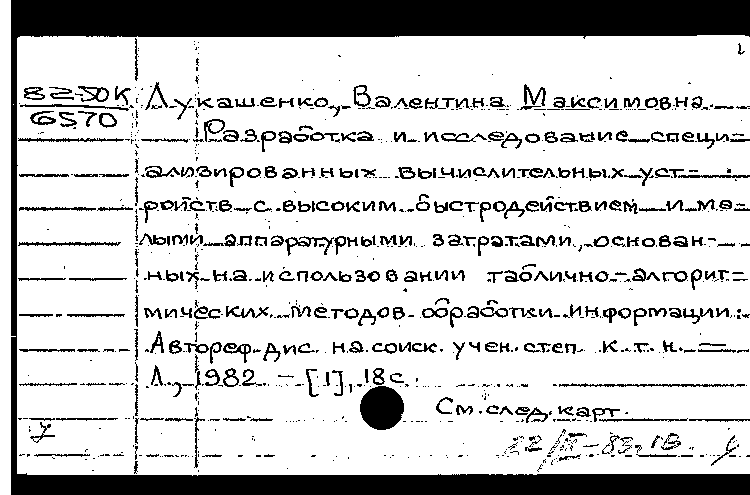 1
82-50К
6570
Лукашенко, Валентина Максимовна
Разработка и исследование специ-
ализированных вычислительных уст-
ройств с высоким быстродействием и ма-
лыми аппаратурными затратами, основан-
ных на использовании таблично-алгорит-
мических методов обработки информации:
Автореф. дис. на соиск. учен. степ. к. т. н. —
Л., 1982. - [1], 18 с.
См. след. карт.
22/III-83.